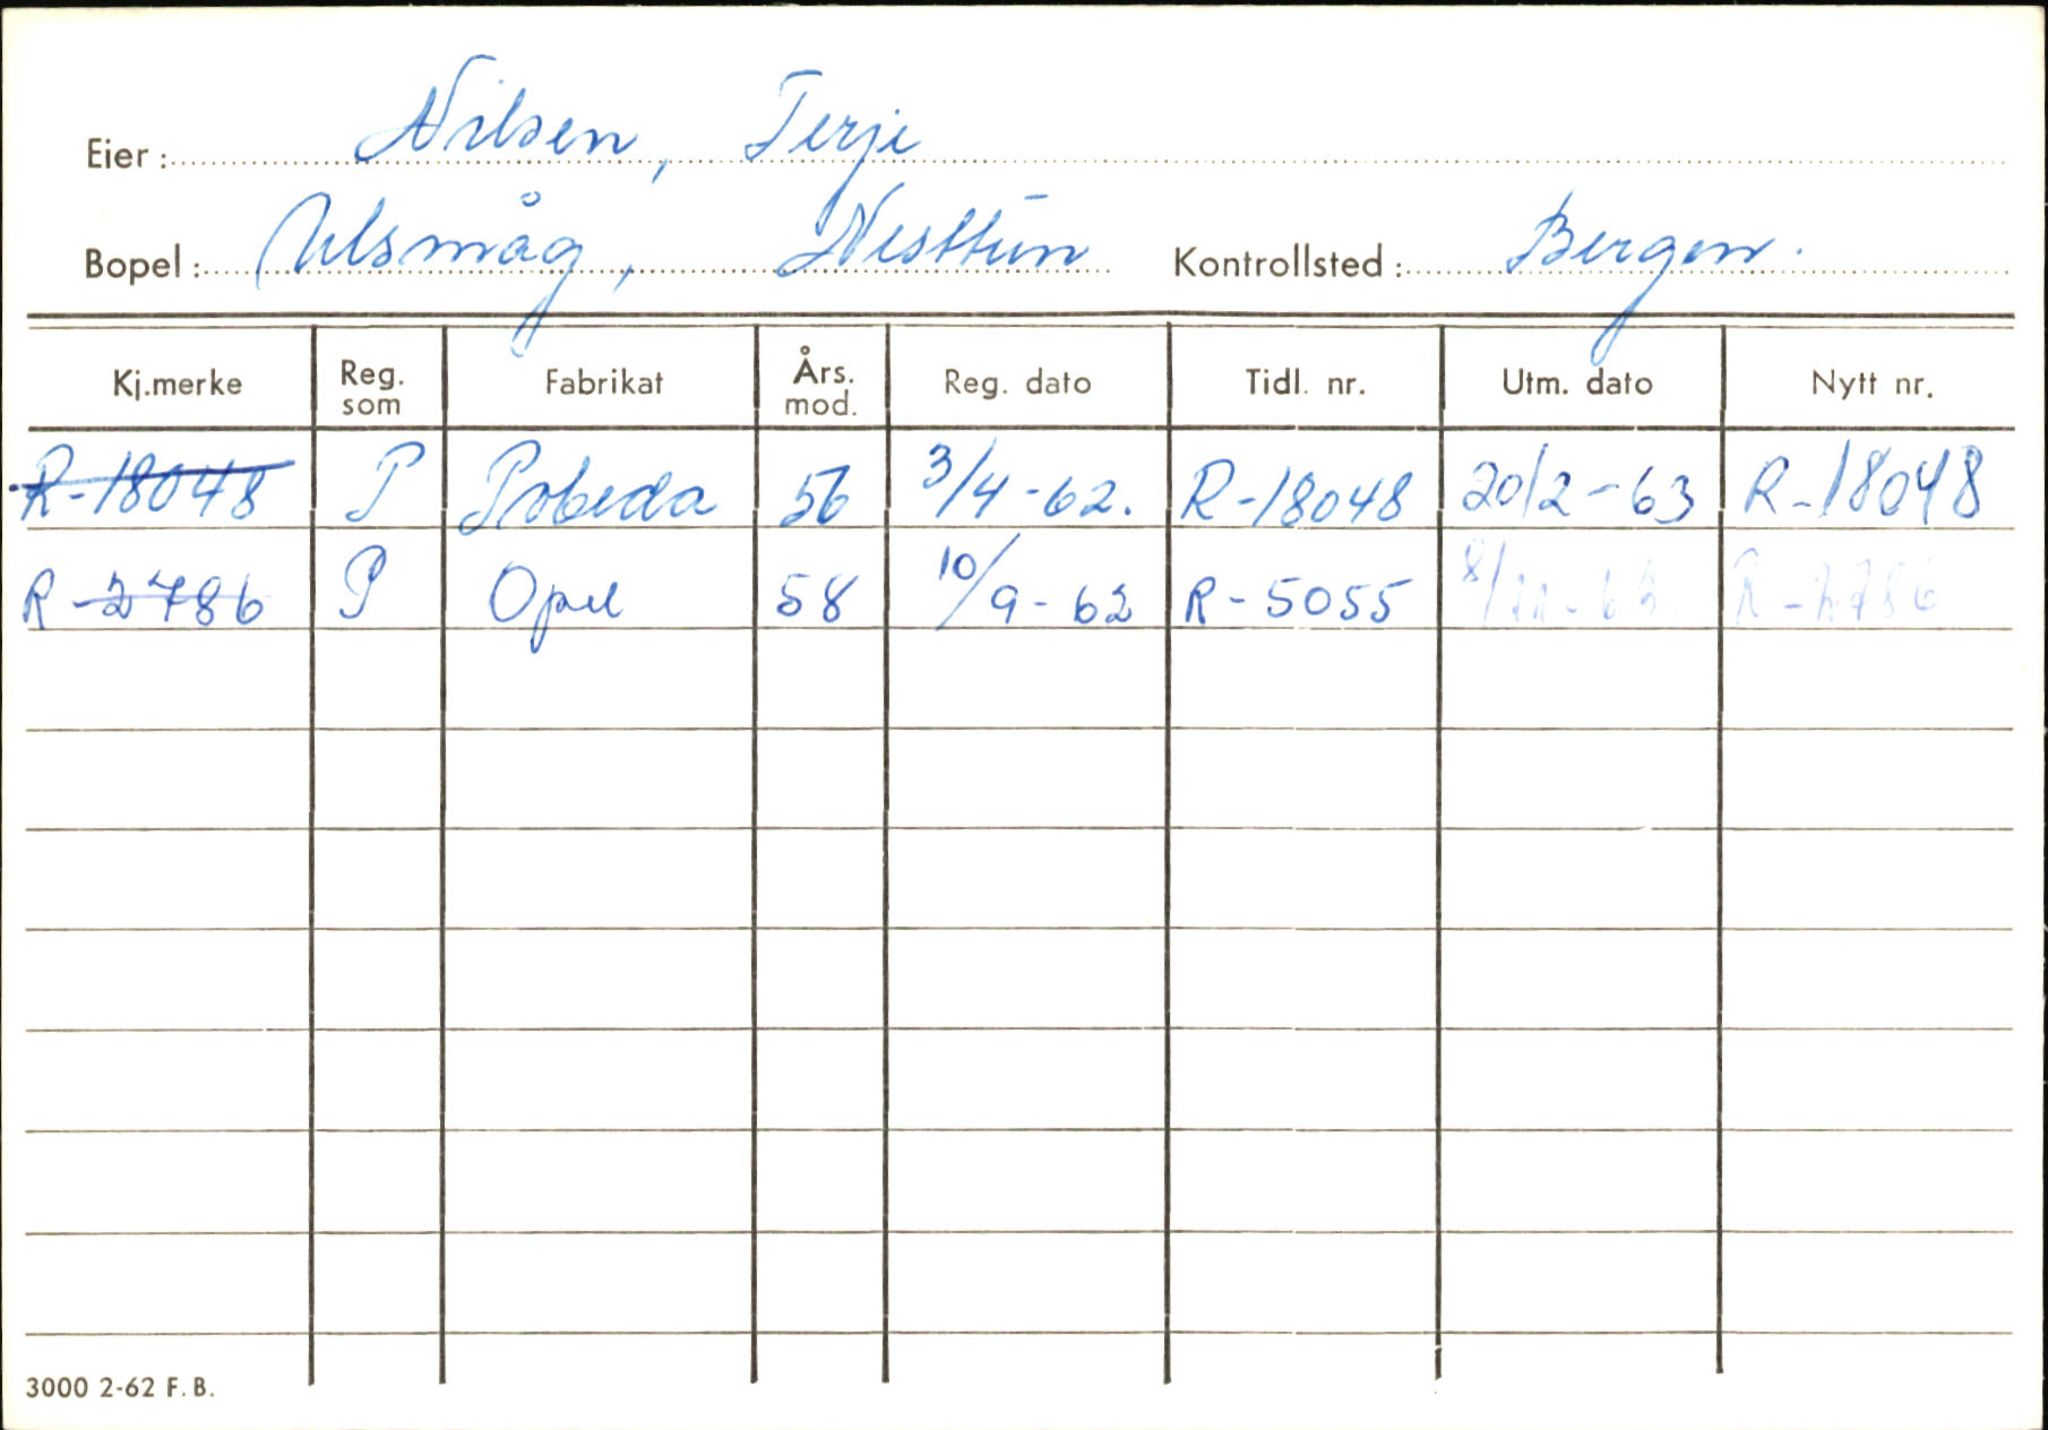 Eier: Nilsen, Terje
Bopel: Ulsmåg, Nesttun Kontrollsted: Bergen.
Kj.merke Reg. som Fabrikat Års. mod. Reg. dato Tidl. nr. Utm. dato Nytt nr.
R-18048 P Pobeda 56 3/4-62. R-18048 20/2-63 R-18048
R-2786 P Opel 58 10/9-62 R-5055 R-2786
3000 2-62 F.B.